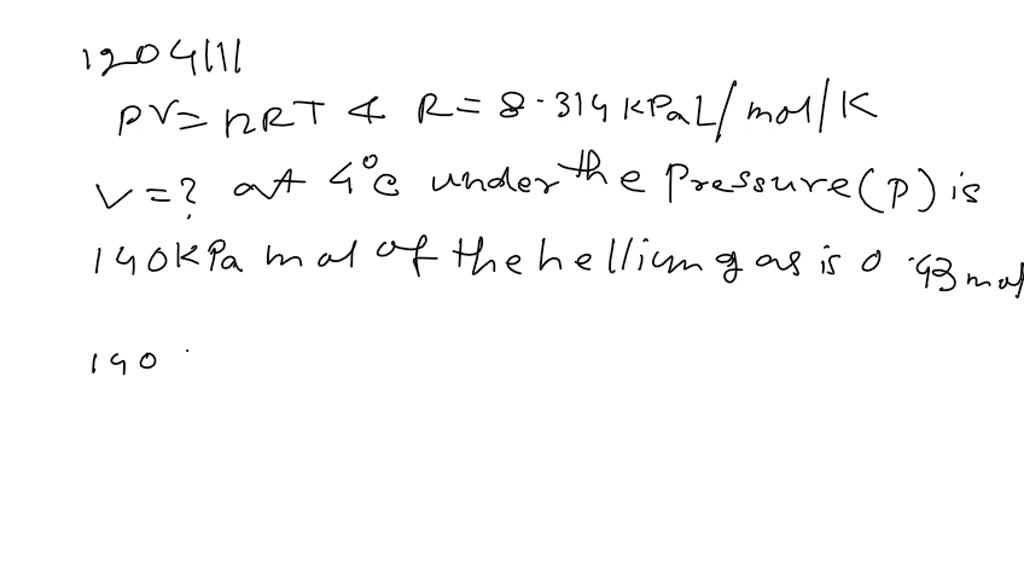 1204111
PV=nRT & R=8.314 KPaL/mol/K
V=? at 4°C under the pressure(P) is
140KPa mol of the hellium gas is 0.43 mol
140